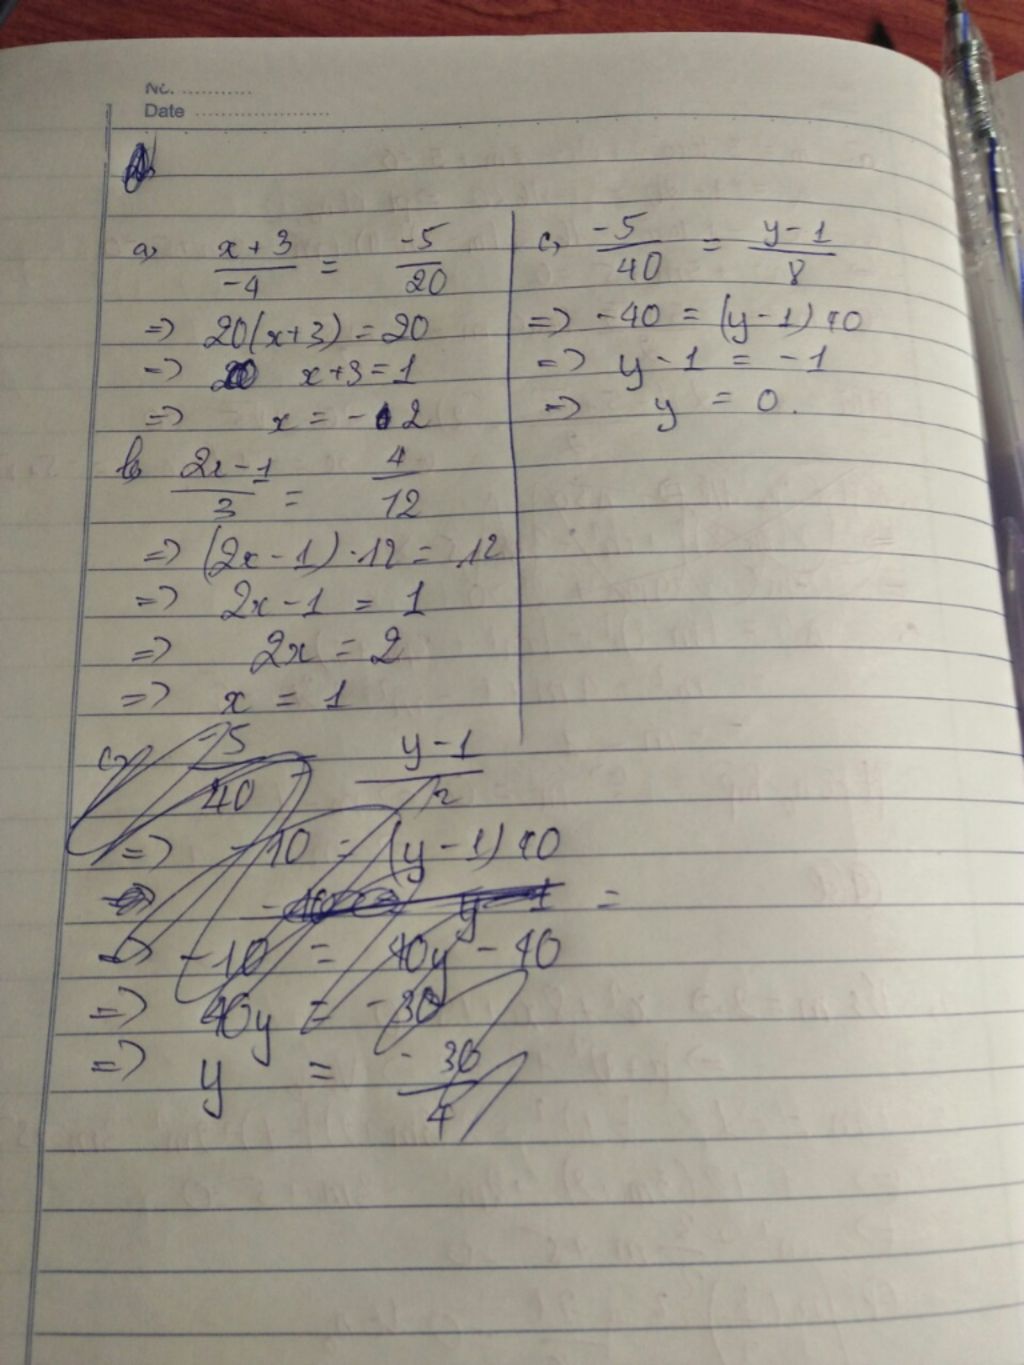 No. ............
Date ........................
a, (x+3)/(-4) = (-5)/20
=> 20(x+3) = 20
=> x+3 = 1
=> x = -2
b, (2x-1)/3 = 4/12
=> (2x-1).12 = 12
=> 2x-1 = 1
=> 2x = 2
=> x = 1
c, (-5)/40 = (y-1)/8
=> -40 = (y-1)40
=> y-1 = -1
=> y = 0.
c, -5/40 = (y-1)/2
=> -10 = (y-1)40
=> -10 = 40y - 40
=> 40y = -30
=> y = -30/4